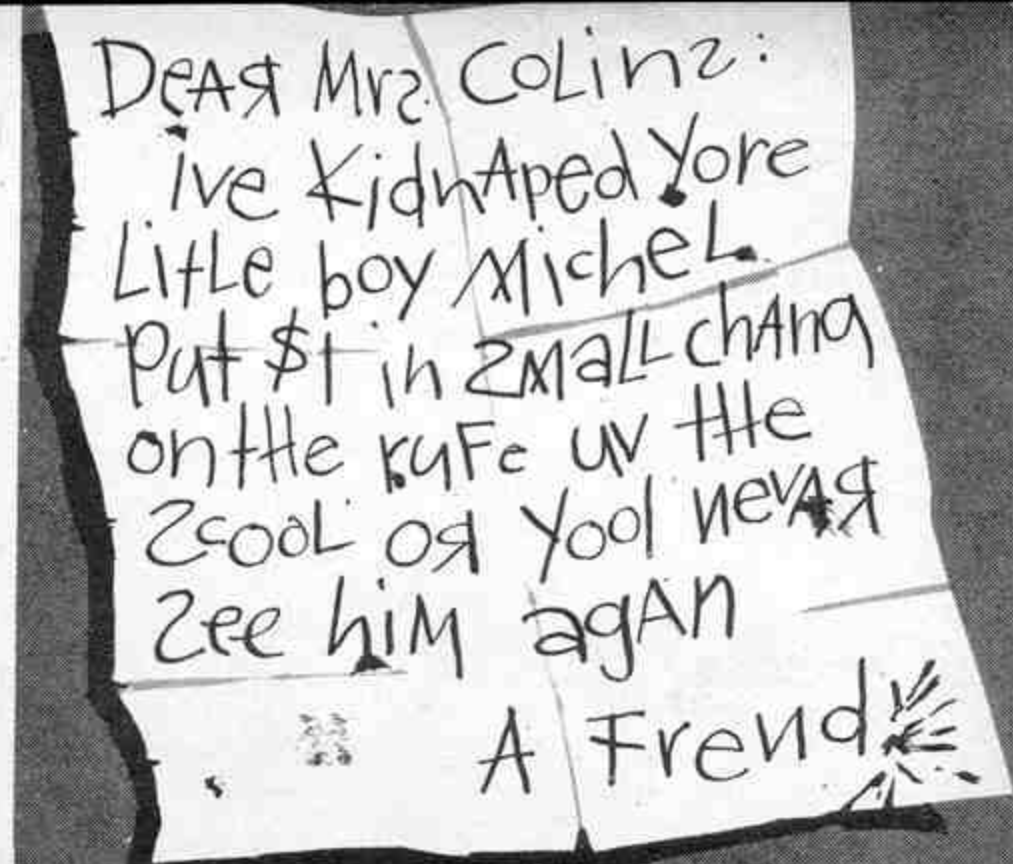 DeAR Mrs. CoLins:
ive KidnAped Yore
LitLe boy MicheL.
Put $1 in SMaLL chAng
on tHe ruFe uv tHe
ScooL oR Yool nevAR
See hiM agAn
A Frend